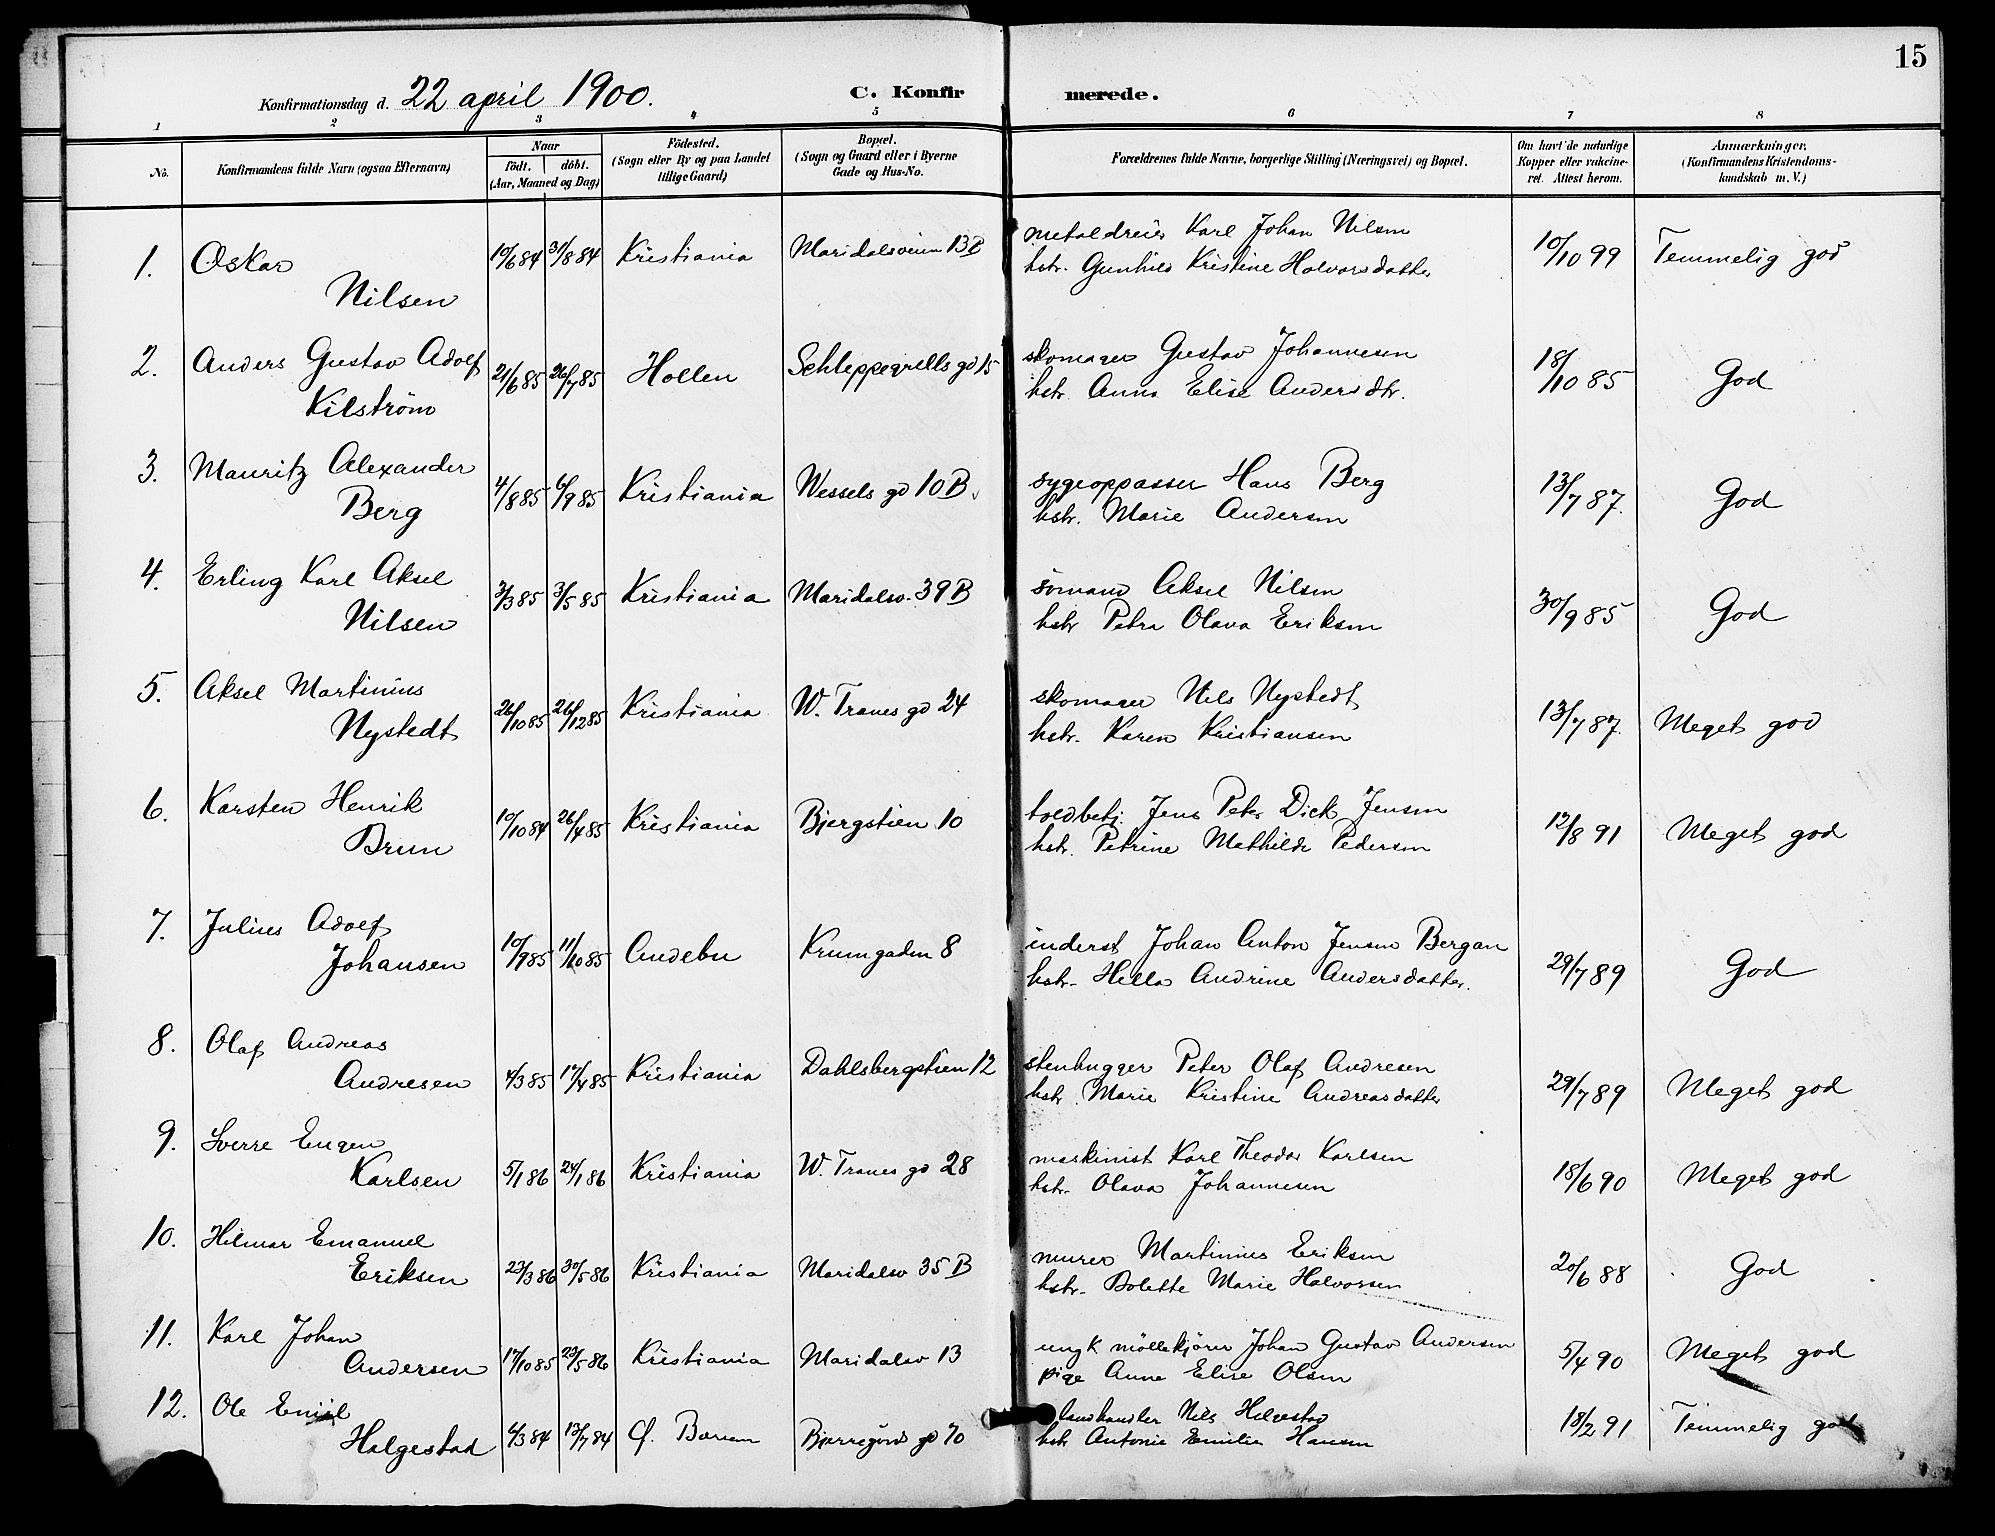 15
Konfirmationsdag d. 22 april 1900. C. Konfirmerede.
1 2 3 4 5 6 7 8
No. Konfirmandens fulde Navn (ogsaa Efternavn) Naar født. døbt. (Aar, Maaned og Dag) Fødested. (Sogn eller By og paa Landet tillige Gaard) Bopæl. (Sogn og Gaard eller i Byerne Gade og Hus-No. Forældrenes fulde Navne, borgerlige Stilling (Næringsvei) og Bopæl. Om havt de naturlige Kopper eller vakcineret. Attest herom. Anmærkninger. (Konfirmandens Kristendomskundskab m. V.)
1. Oskar 10/6 84 31/8 84 Kristiania Maridalsveien 13B metaldreier Karl Johan Nilsen 10/10 99 Temmelig god
Nilsen hstr. Gunhild Kristine Halvorsdatter
2. Anders Gustav Adolf 21/6 85 26/7 85 Hollen Schleppegrells gd 15 skomager Gustav Johannesen 18/10 85 God
Kilstrøm hstr. Anna Elise Andersdtr.
3. Mauritz Alexander 4/8 85 6/9 85 Kristiania Wessels gd 10B. sygeoppasser Hans Berg 13/7 87. God
Berg hstr. Marie Andersen
4. Erling Karl Aksel 3/3 85 3/5 85 Kristiania Maridalsv. 39B sømand Aksel Nilsen 30/9 85 God
Nilsen hstr Petra Olava Eriksen
5. Aksel Martinius 26/10 85 26/12 85 Kristiania W. Tranes gd 24 skomager Nils Nystedt 13/7 87. Meget god
Nystedt hstr. Karen Kristiansen
6. Karsten Henrik 10/10 84 26/4 85 Kristiania Bjergstien 10 toldbetj. Jens Peter Dick Jensen 12/8 91 Meget god
Brun hstr. Petrine Mathilde Pedersen
7. Julius Adolf 10/9 85 11/10 85 Andebu Krumgaden 8 inderst Johan Anton Jensen Bergan 29/7 89 God
Johansen hstr. Hella Andrine Andersdatter.
8. Olaf Andreas 4/3 85 17/4 85 Kristiania Dahlsbergstien 12 stenhugger Peter Olaf Andresen 29/7 89 Meget god
Andresen hstr. Marie Kristine Andreasdatter
9. Sverre Eugen 5/1 86 24/1 86 Kristiania W. Tranes gd 28 maskinist Karl Theodor Karlsen 18/6 90 Meget god
Karlsen hstr. Olava Johannesen
10. Hilmar Emanuel 23/3 86 30/5 86 Kristiania Maridalsv 35B murer Martinius Eriksen 20/6 88 God
Eriksen hstr. Bolette Marie Halvorsen
11. Karl Johan 17/10 85 23/5 86 Kristiania Maridalsv 13 ungk møllekjører Johan Gustav Andersen 5/4 90 Meget god
Andersen pige Anne Elise Olsen
12. Ole Emil 4/3 84 13/7 84 Ø. Bærum Bjerregårds gd 70 landhandler Nils Helgestad 18/2 91 Temmelig god
Halgestad hstr Antonie Emilie Hansen